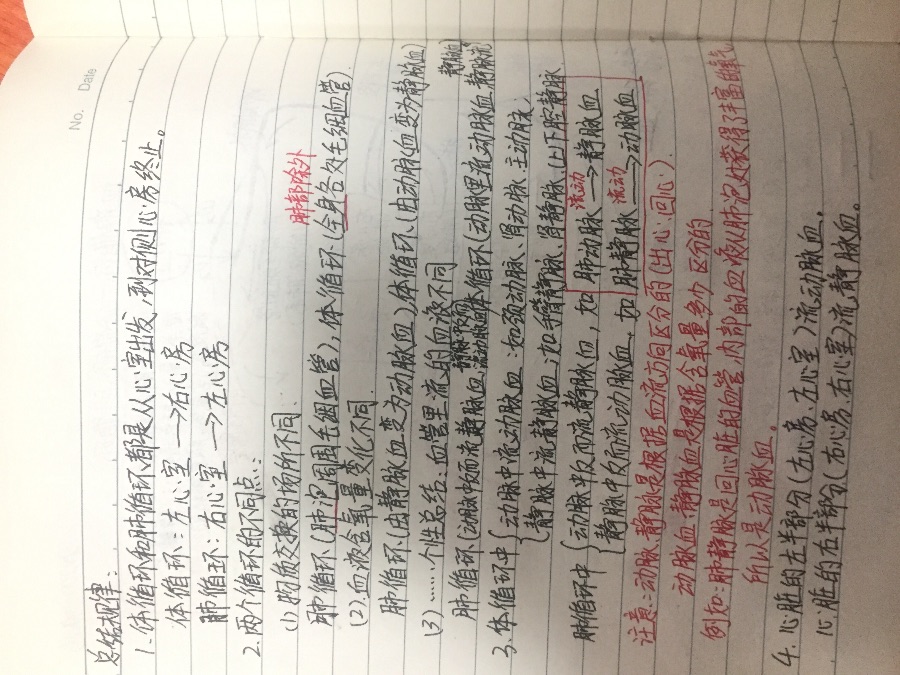 No.
Date
总结规律：
1.体循环和肺循环都是从心室出发，到对侧心房终止。
体循环：左心室→右心房
肺循环：右心室→左心房
2.两个循环的不同点：
(1)物质交换的场所不同.
肺部除外
肺循环(肺泡周围毛细血管)，体循环(全身各处毛细血管)
(2)血液含氧量变化不同
肺循环(由静脉血变为动脉血)体循环(由动脉血变为静脉血)
(3)……个性总结：血管里流的血液不同
肺循环(动脉流静脉血,静脉中反而流动脉血)体循环(动脉里流动脉血,静脉流静脉血)
3.体循环中{动脉中流动脉血：如颈动脉、肾动脉.主动脉
静脉中流静脉血；如肾静脉、上下腔静脉
肺循环中{动脉中反而流静脉血，如肺动脉 流动→静脉血
静脉中反而流动脉血，如肺静脉 流动→动脉血
注意：动脉静脉是根据血流方向区分的(出心.回心).
动脉血静脉血是根据含氧量多少区分的
例如：肺静脉是回心脏的血管,内部的血液从肺泡处获得了丰富的氧气
所以是动脉血。
4.心脏的左半部分(左心房、左心室)流动脉血。
心脏的右半部分(右心房、右心室)流静脉血。